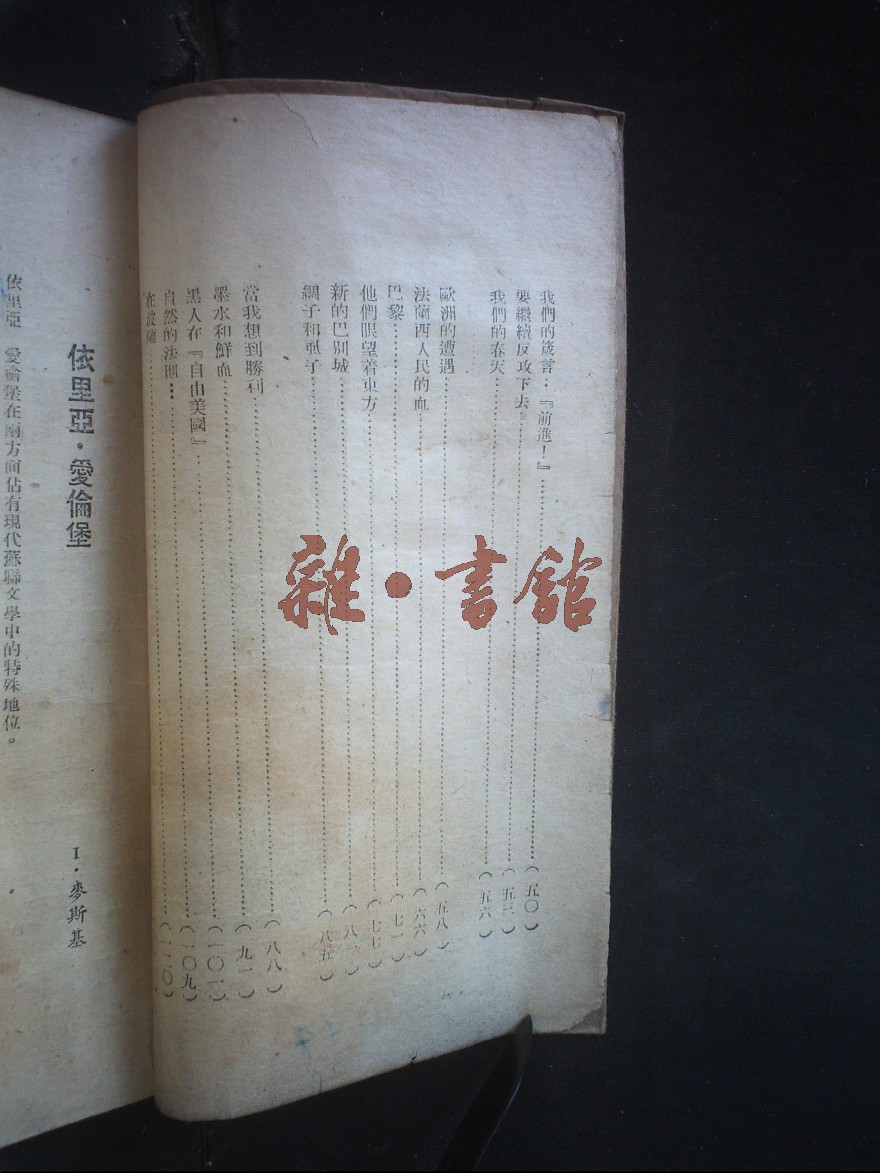 我們的箴言：『前進！』……（五〇）
要繼續反攻下去……（五三）
我們的春天……（五六）
歐洲的遭遇……（五八）
法蘭西人民的血……（六六）
巴黎……（七一）
他們眼望着東方……（七七）
新的巴別城……（八一）
綢子和虱子……（八五）
當我想到勝利……（八八）
墨水和鮮血……（九一）
黑人在『自由美國』……（一〇一）
自然的法則……（一〇九）
在波蘭……（一一〇）
雜·書館
依里亞·愛倫堡
I·麥斯基
依里亞 愛倫堡在兩方面佔有現代蘇聯文學中的特殊地位。